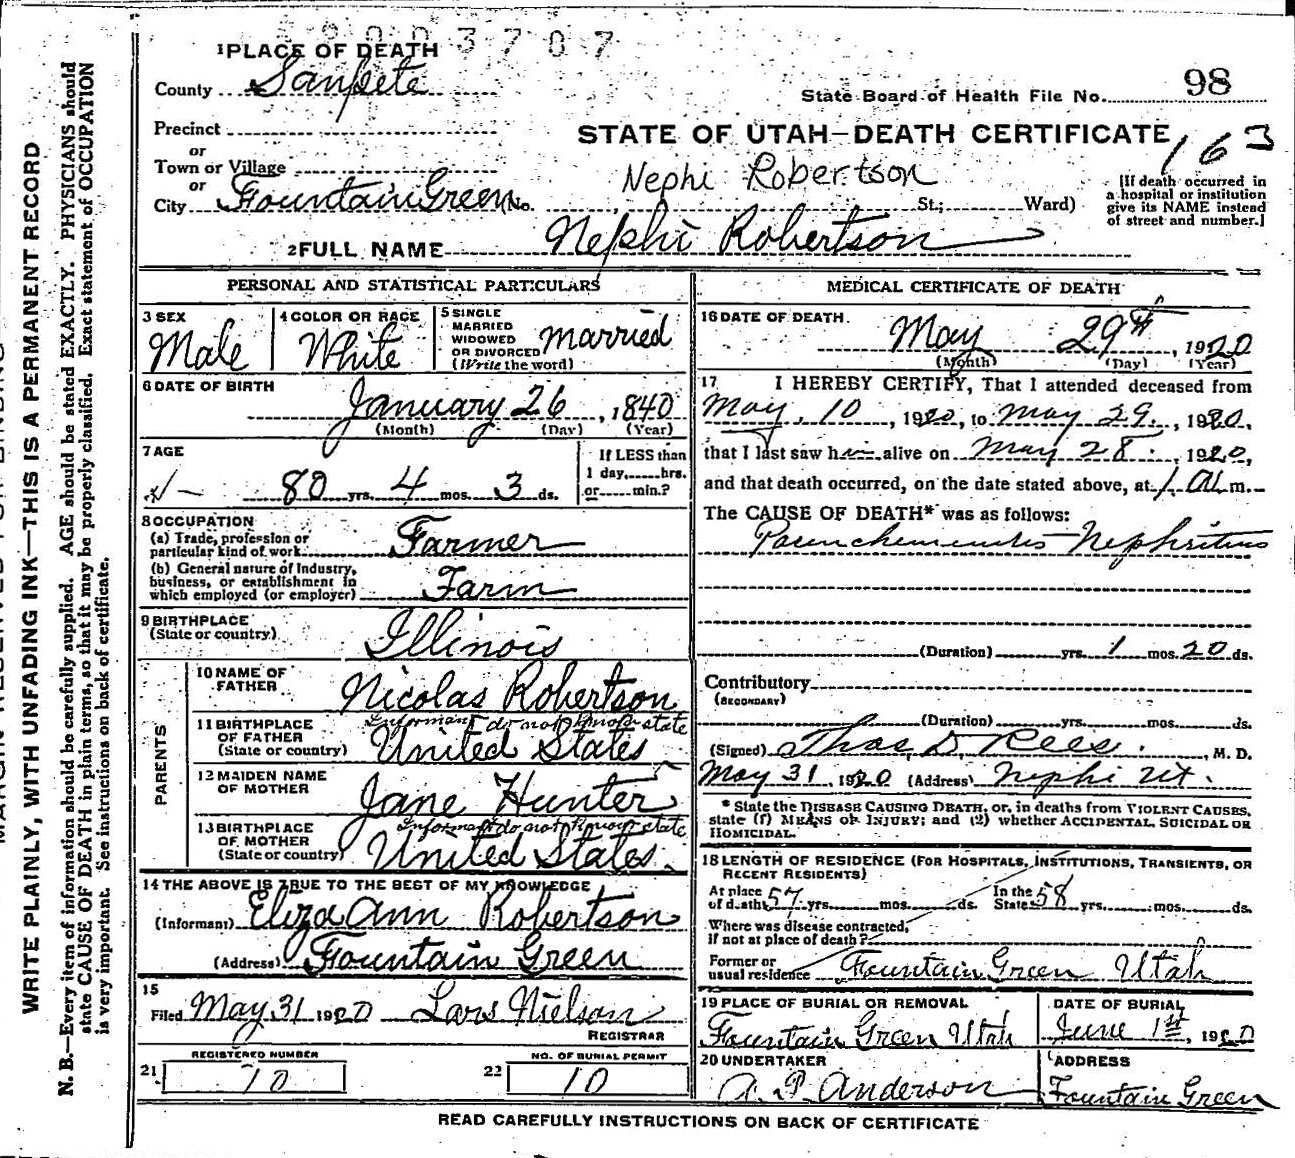 9003707
1 PLACE OF DEATH
County Sanpete
State Board of Health File No. 98
Precinct
or
STATE OF UTAH—DEATH CERTIFICATE
163
Town or Village
or
Nephi Robertson
City Fountain Green (No. St.; Ward)
[If death occurred in
a hospital or institution
give its NAME instead
of street and number.]
2 FULL NAME Nephi Robertson
PERSONAL AND STATISTICAL PARTICULARS
3 SEX
Male
4 COLOR OR RACE
White
5 SINGLE
MARRIED
WIDOWED
OR DIVORCED
(Write the word)
married
6 DATE OF BIRTH
January 26, 1840
(Month) (Day) (Year)
7 AGE
80 yrs. 4 mos. 3 ds.
If LESS than
1 day, hrs.
or min.?
8 OCCUPATION
(a) Trade, profession or
particular kind of work
Farmer
(b) General nature of Industry,
business, or establishment in
which employed (or employer)
Farm
9 BIRTHPLACE
(State or country)
Illinois
PARENTS
10 NAME OF
FATHER
Nicolas Robertson
11 BIRTHPLACE
OF FATHER
(State or country)
Informant do not know state
United States
12 MAIDEN NAME
OF MOTHER
Jane Hunter
13 BIRTHPLACE
OF MOTHER
(State or country)
Informant do not know state
United States
14 THE ABOVE IS TRUE TO THE BEST OF MY KNOWLEDGE
(Informant) Eliza Ann Robertson
(Address) Fountain Green
15
Filed May 31 1920 Lars Nielson
REGISTRAR
REGISTERED NUMBER
21 10
NO. OF BURIAL PERMIT
22 10
MEDICAL CERTIFICATE OF DEATH
16 DATE OF DEATH
May 29th, 1920
(Month) (Day) (Year)
17 I HEREBY CERTIFY, That I attended deceased from
May, 10, 1920, to May 29, 1920,
that I last saw him alive on May 28, 1920,
and that death occurred, on the date stated above, at 1 A.m.
The CAUSE OF DEATH* was as follows:
(Duration) yrs. 1 mos. 20 ds.
Contributory
(SECONDARY)
(Duration) yrs. mos. ds.
(Signed) Thos D. Rees, M. D.
May 31, 1920 (Address) Nephi Ut.
* State the DISEASE CAUSING DEATH, or, in deaths from VIOLENT CAUSES,
state (1) MEANS OF INJURY; and (2) whether ACCIDENTAL, SUICIDAL OR
HOMICIDAL.
18 LENGTH OF RESIDENCE (FOR HOSPITALS, INSTITUTIONS, TRANSIENTS, OR
RECENT RESIDENTS)
At place
of death 57 yrs. mos. ds.
In the
State 58 yrs. mos. ds.
Where was disease contracted,
if not at place of death?
Former or
usual residence Fountain Green Utah
19 PLACE OF BURIAL OR REMOVAL
Fountain Green Utah
DATE OF BURIAL
June 1st, 1920
20 UNDERTAKER
A. P. Anderson
ADDRESS
Fountain Green
READ CAREFULLY INSTRUCTIONS ON BACK OF CERTIFICATE
WRITE PLAINLY, WITH UNFADING INK—THIS IS A PERMANENT RECORD
N. B.—Every item of information should be carefully supplied. AGE should be stated EXACTLY. PHYSICIANS should
state CAUSE OF DEATH in plain terms, so that it may be properly classified. Exact statement of OCCUPATION
is very important. See instructions on back of certificate.